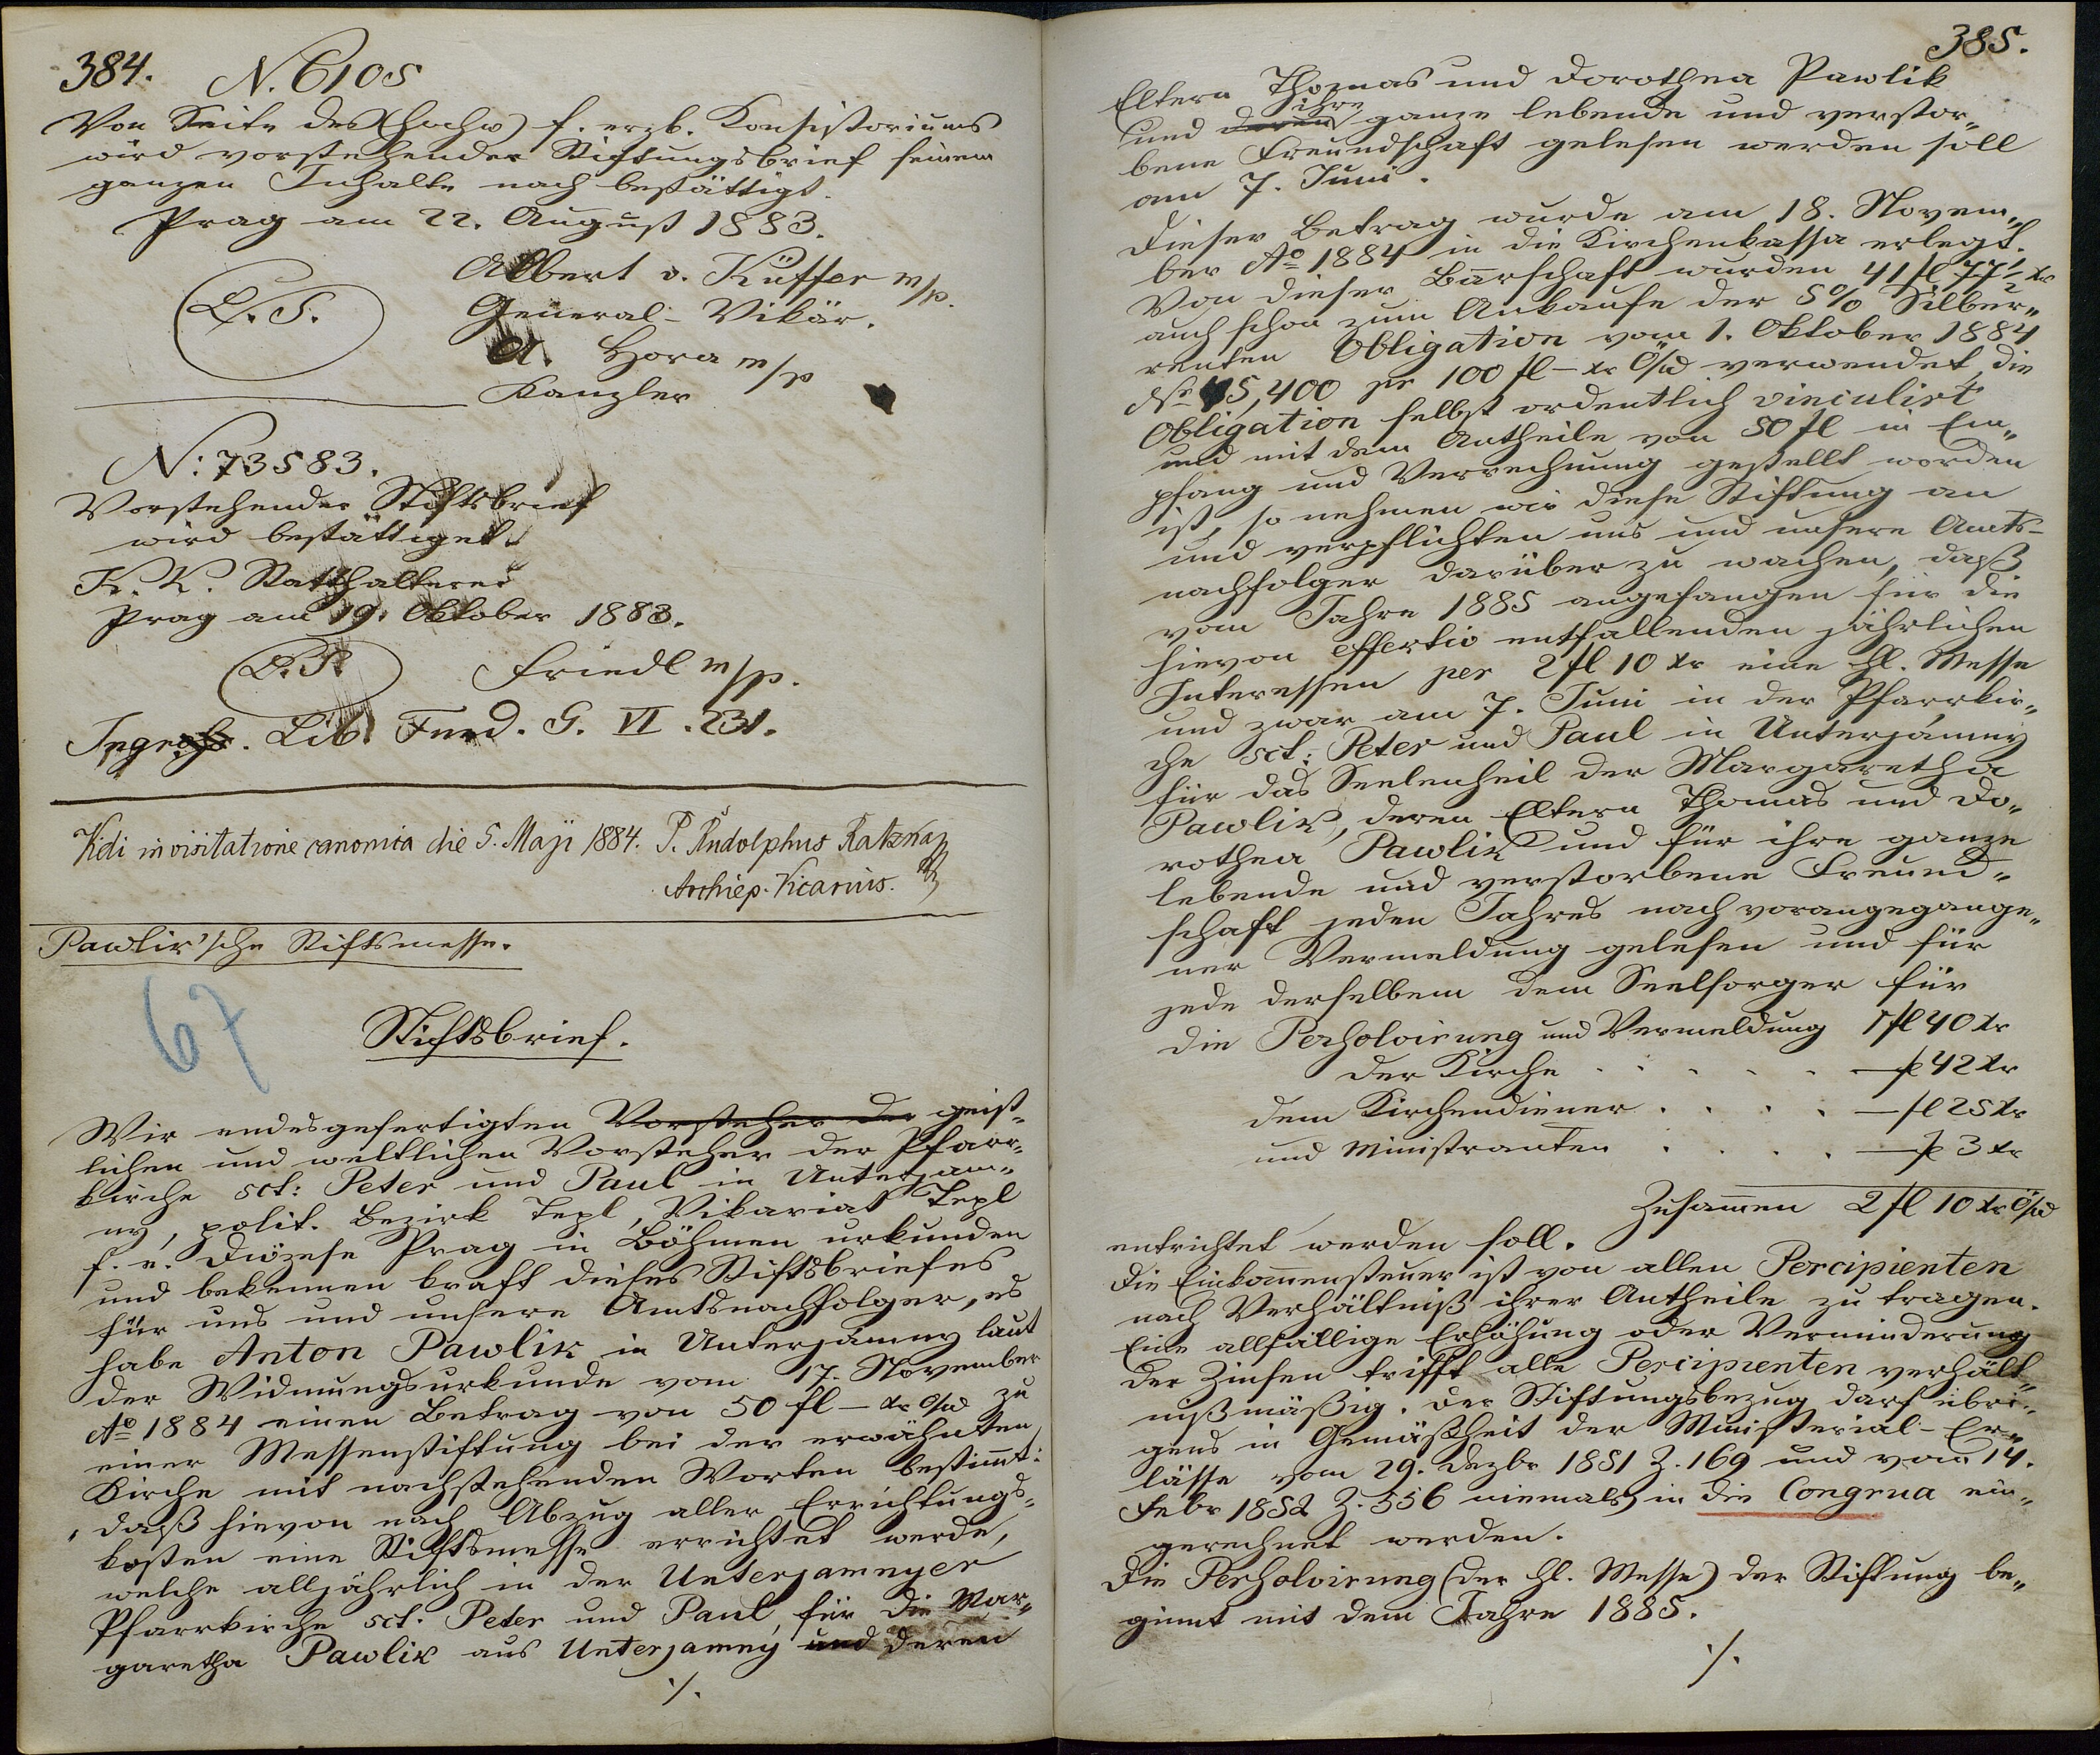 384. N. 6105
Von Seite des (hochw) f. erzb. Konsistoriums
wird vorstehender Stiftungsbrief seinem
ganzen Inhalte nach bestättigt.
Prag am 22. August 1883.
L. S.
Albert v. Küffer m/p.
General-Vikär.
A. Hora m/p
Kanzler
N: 73583.
Vorstehender Stiftsbrief
wird bestättiget.
K. K. Statthalterei
Prag am 19. Oktober 1883.
L. S.
Friedl m/p.
Ingross. Lib. Fund. G. VI. 231.
Vidi in visitatione canonica die 5. Maji 1884. P. Rudolphus Ratzka
Archiep. Vicarius.
Pawlik'sche Stiftsmesse.
67
Stiftsbrief.
Wir endesgefertigten Vorsteher der geist-
lichen und weltlichen Vorsteher der Pfarr-
kirche sct: Peter und Paul in Unterjam-
ny, polit. Bezirk Tepl, Vikariat Tepl
f. e. Diözese Prag in Böhmen urkunden
und bekennen kraft dieses Stiftsbriefes
für uns und unsere Amtsnachfolger, es
habe Anton Pawlik in Unterjamny laut
der Widmungsurkunde vom 17. November
Aº 1884 einen Betrag von 50 fl – xr Ö/w zu
einer Messenstiftung bei der erwähnten
Kirche mit nachstehenden Worten bestim̄t:
„daß hievon nach Abzug aller Errichtungs-
kosten eine Stiftsmesse errichtet werde,
welche alljährlich in der Unterjamnyer
Pfarrkirche sct. Peter und Paul für die Mar-
garetha Pawlik aus Unterjamny und deren
./.
385.
Eltern Thomas und Dorothea Pawlik
ihre
und deren ganze lebende und verstor-
bene Freundschaft gelesen werden soll
am 7. Juni.
Dieser Betrag wurde am 18. Novem-
ber Aº 1884 in die Kirchenkassa erlegt.
Von dieser Barschaft wurden 41 fl 77½ xr
auch schon zum Ankaufe der 5% Silber-
renten Obligation vom 1. Oktober 1884
5,400 pr 100 fl – xr Ö/w verwendet, die
Obligation selbst ordentlich vinculirt
und mit dem Antheile von 50 fl in Em-
pfang und Verrechnung gestellt worden
ist, so nehmen wir diese Stiftung an
und verpflichten uns und unsere Amts-
nachfolger darüber zu wachen, daß
vom Jahre 1885 angefangen für die
hievon effectiv entfallenden jährlichen
Interessen per 2 fl 10 xr eine hl. Messe
und zwar am 7. Juni in der Pfarrkir-
che sct: Peter und Paul in Unterjamny
für das Seelenheil der Margaretha
Pawlik, deren Eltern Thomas und Do-
rothea Pawlik und für ihre ganze
lebende und verstorbene Freund-
schaft jeden Jahres nach vorangegange-
ner Vermeldung gelesen und für
jede derselben dem Seelsorger für
die Persolvirung und Vermeldung 1 fl 40 xr
der Kirche . . . . . – fl 42 xr
dem Kirchendiener . . . . – fl 25 xr
und Ministranten . . . . – fl 3 xr
Zusam̄en 2 fl 10 xr Ö/w
entrichtet werden soll.
Die Einkom̄ensteuer ist von allen Percipienten
nach Verhältniß ihrer Antheile zu tragen.
Eine allfällige Erhöhung oder Verminderung
der Zinsen trifft alle Percipienten verhält-
nißmäßig. Der Stiftungsbezug darf übri-
gens in Gemäßheit der Ministerial-Er-
lässe vom 29. Dezbr 1851 Z. 169 und vom 14.
Febr 1852 Z. 556 niemals in die Congrua ein-
gerechnet werden.
Die Persolvirung (der hl. Messe) der Stiftung be-
ginnt mit dem Jahre 1885.
./.